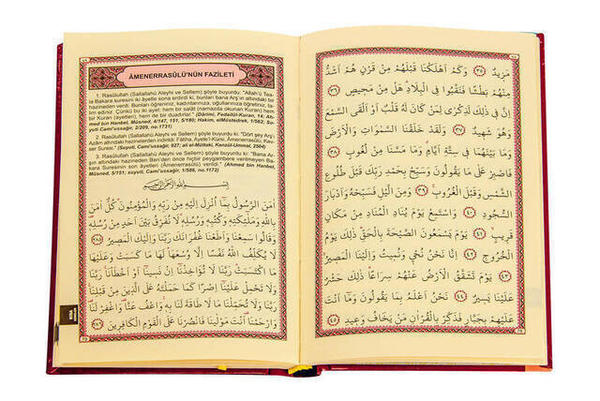 ÂMENERRASÛLÜ'NÜN FAZİLETİ
1. Rasûlullah (Sallallahü Aleyhi ve Sellem) şöyle buyurdu: "Allah'ü Tea-
la Bakara suresini iki âyetle sona erdirdi ki, bunları bana Arş'ın altındaki bir
hazineden verdi. Bunları öğreniniz, kadınlarınıza, oğullarınıza öğretiniz, ta-
lim ediniz. Çünkü bu iki ayet; hem bir salât (namazda okunan Kuran) hem
Kuran, hem de duadır." (Dârimi, Fedailül-Kuran, 14; Ah-
med bin Hanbel, Müsned, 4/147, 151, 5/180; Hakim, elMüstedrek, 1/562; Su-
yuti Cami'ussağir, 2/209, no.1731)
2. Rasûlullah (Sallallahü Aleyhi ve Sellem) şöyle buyurdu ki: "Dört şey Arş'ı
Azâm altındaki hazineden indirildi: Fâtiha, Âyete'l-Kürsi, Âmenerrasûlü, Kev-
ser Suresi." (Suyuti, Cami'ussağir, 927; ali el-Mütteki, Kenzül-Ummal, 2504)
3. Rasûlullah (Sallallahü Aleyhi ve Sellem) şöyle buyurdu ki: "Bana Ar-
şın altındaki hazineden Ben'den önce hiçbir peygambere verilmeyen Ba-
kara Suresinin son âyetleri (Âmenerrasûlü) verildi." (Ahmed bin Hanbel,
Müsned, 5/151; suyuti, Cami'ussağir, 1/566, no.1172)
بِسْمِ اللهِ الرَّحْمٰنِ الرَّحِيمِ
اٰمَنَ الرَّسُولُ بِمَا اُنْزِلَ اِلَيْهِ مِنْ رَبِّهِ وَالْمُؤْمِنُونَ كُلٌّ اٰمَنَ
بِاللهِ وَمَلٰئِكَتِهِ وَكُتُبِهِ وَرُسُلِهِ لَا نُفَرِّقُ بَيْنَ اَحَدٍ مِنْ رُسُلِهِ
وَقَالُوا سَمِعْنَا وَاَطَعْنَا غُفْرَانَكَ رَبَّنَا وَاِلَيْكَ الْمَصِيرُ ﴿٢٨٥﴾
لَا يُكَلِّفُ اللهُ نَفْسًا اِلَّا وُسْعَهَا لَهَا مَا كَسَبَتْ وَعَلَيْهَا
مَا اكْتَسَبَتْ رَبَّنَا لَا تُؤَاخِذْنَا اِنْ نَسِينَا اَوْ اَخْطَأْنَا رَبَّنَا
وَلَا تَحْمِلْ عَلَيْنَا اِصْرًا كَمَا حَمَلْتَهُ عَلَى الَّذِينَ مِنْ قَبْلِنَا
رَبَّنَا وَلَا تُحَمِّلْنَا مَا لَا طَاقَةَ لَنَا بِهِ وَاعْفُ عَنَّا وَاغْفِرْ لَنَا
وَارْحَمْنَا اَنْتَ مَوْلٰينَا فَانْصُرْنَا عَلَى الْقَوْمِ الْكَافِرِينَ ﴿٢٨٦﴾
مَزِيدٌ ﴿٣٥﴾ وَكَمْ اَهْلَكْنَا قَبْلَهُمْ مِنْ قَرْنٍ هُمْ اَشَدُّ
مِنْهُمْ بَطْشًا فَنَقَّبُوا فِي الْبِلَادِ هَلْ مِنْ مَحِيصٍ ﴿٣٦﴾
اِنَّ فِي ذٰلِكَ لَذِكْرٰى لِمَنْ كَانَ لَهُ قَلْبٌ اَوْ اَلْقَى السَّمْعَ
وَهُوَ شَهِيدٌ ﴿٣٧﴾ وَلَقَدْ خَلَقْنَا السَّمٰوَاتِ وَالْاَرْضَ
وَمَا بَيْنَهُمَا فِي سِتَّةِ اَيَّامٍ وَمَا مَسَّنَا مِنْ لُغُوبٍ ﴿٣٨﴾
فَاصْبِرْ عَلٰى مَا يَقُولُونَ وَسَبِّحْ بِحَمْدِ رَبِّكَ قَبْلَ طُلُوعِ
الشَّمْسِ وَقَبْلَ الْغُرُوبِ ﴿٣٩﴾ وَمِنَ الَّيْلِ فَسَبِّحْهُ وَاَدْبَارَ
السُّجُودِ ﴿٤٠﴾ وَاسْتَمِعْ يَوْمَ يُنَادِ الْمُنَادِ مِنْ مَكَانٍ
قَرِيبٍ ﴿٤١﴾ يَوْمَ يَسْمَعُونَ الصَّيْحَةَ بِالْحَقِّ ذٰلِكَ يَوْمُ
الْخُرُوجِ ﴿٤٢﴾ اِنَّا نَحْنُ نُحْيِ وَنُمِيتُ وَاِلَيْنَا الْمَصِيرُ ﴿٤٣﴾
يَوْمَ تَشَقَّقُ الْاَرْضُ عَنْهُمْ سِرَاعًا ذٰلِكَ حَشْرٌ
عَلَيْنَا يَسِيرٌ ﴿٤٤﴾ نَحْنُ اَعْلَمُ بِمَا يَقُولُونَ وَمَا اَنْتَ
عَلَيْهِمْ بِجَبَّارٍ فَذَكِّرْ بِالْقُرْاٰنِ مَنْ يَخَافُ وَعِيدِ ﴿٤٥﴾